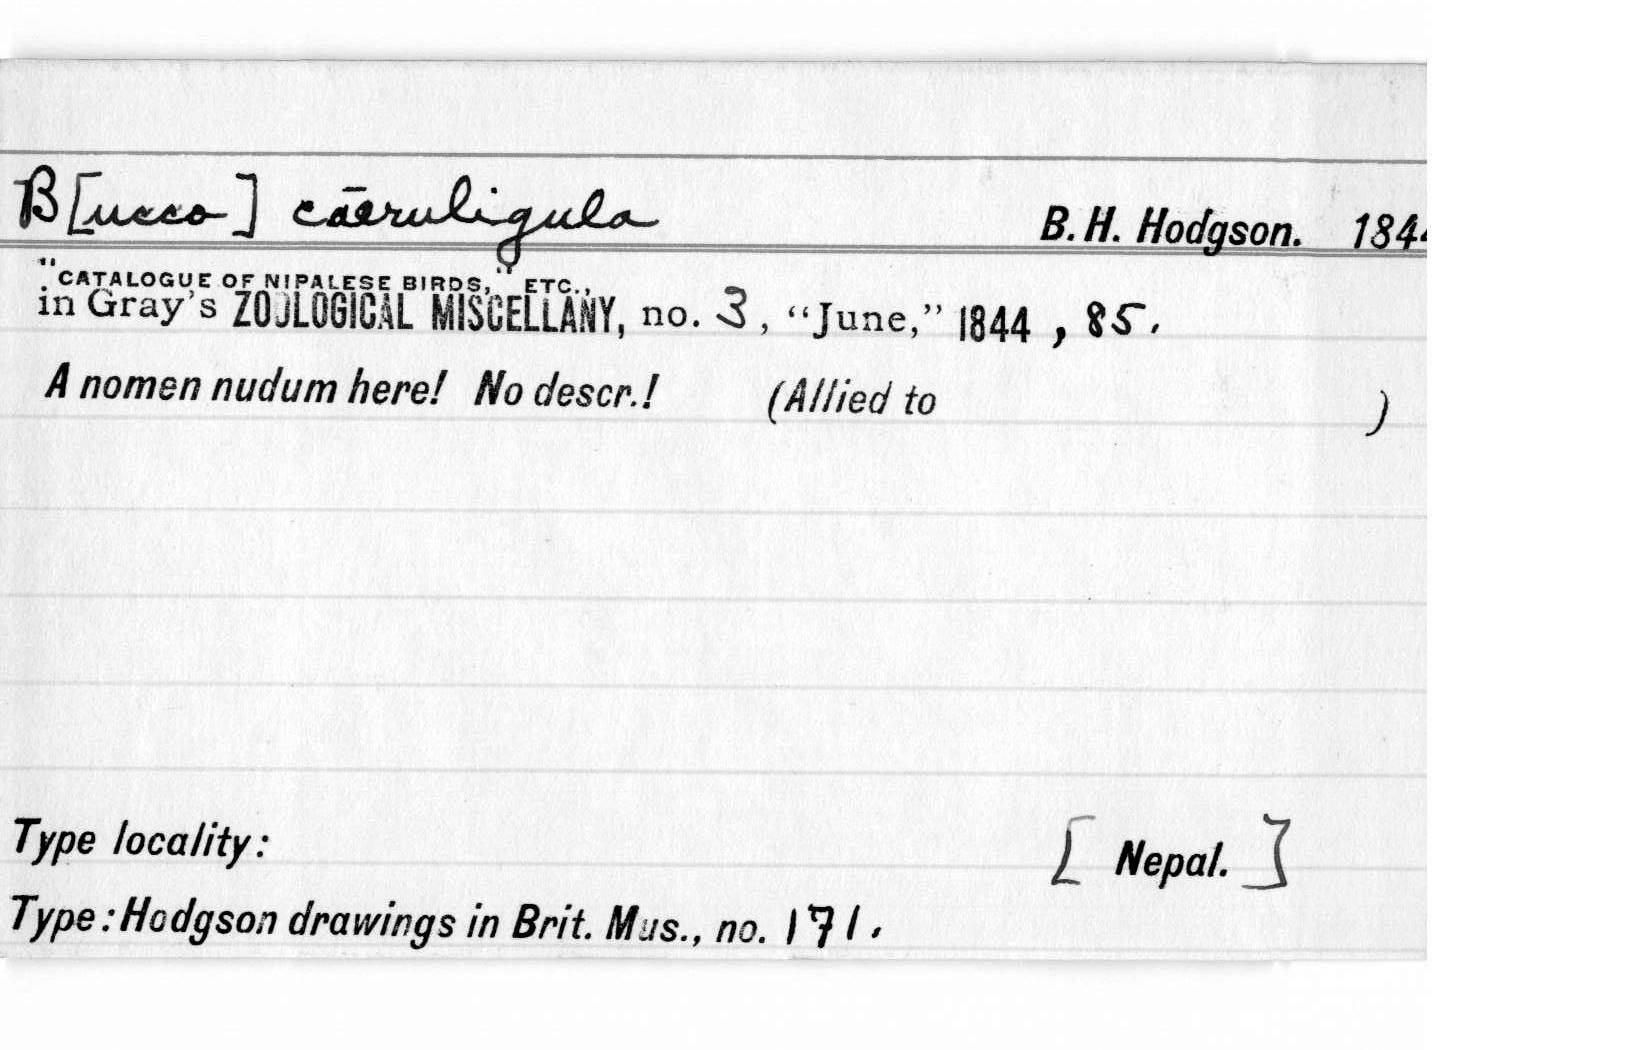 B[ucco] cāeruligula B. H. Hodgson. 1844
"CATALOGUE OF NIPALESE BIRDS," ETC.,
in Gray's ZOOLOGICAL MISCELLANY, no. 3, "June," 1844, 85.
A nomen nudum here! No descr.! (Allied to )
Type locality: [Nepal.]
Type: Hodgson drawings in Brit. Mus., no. 171.